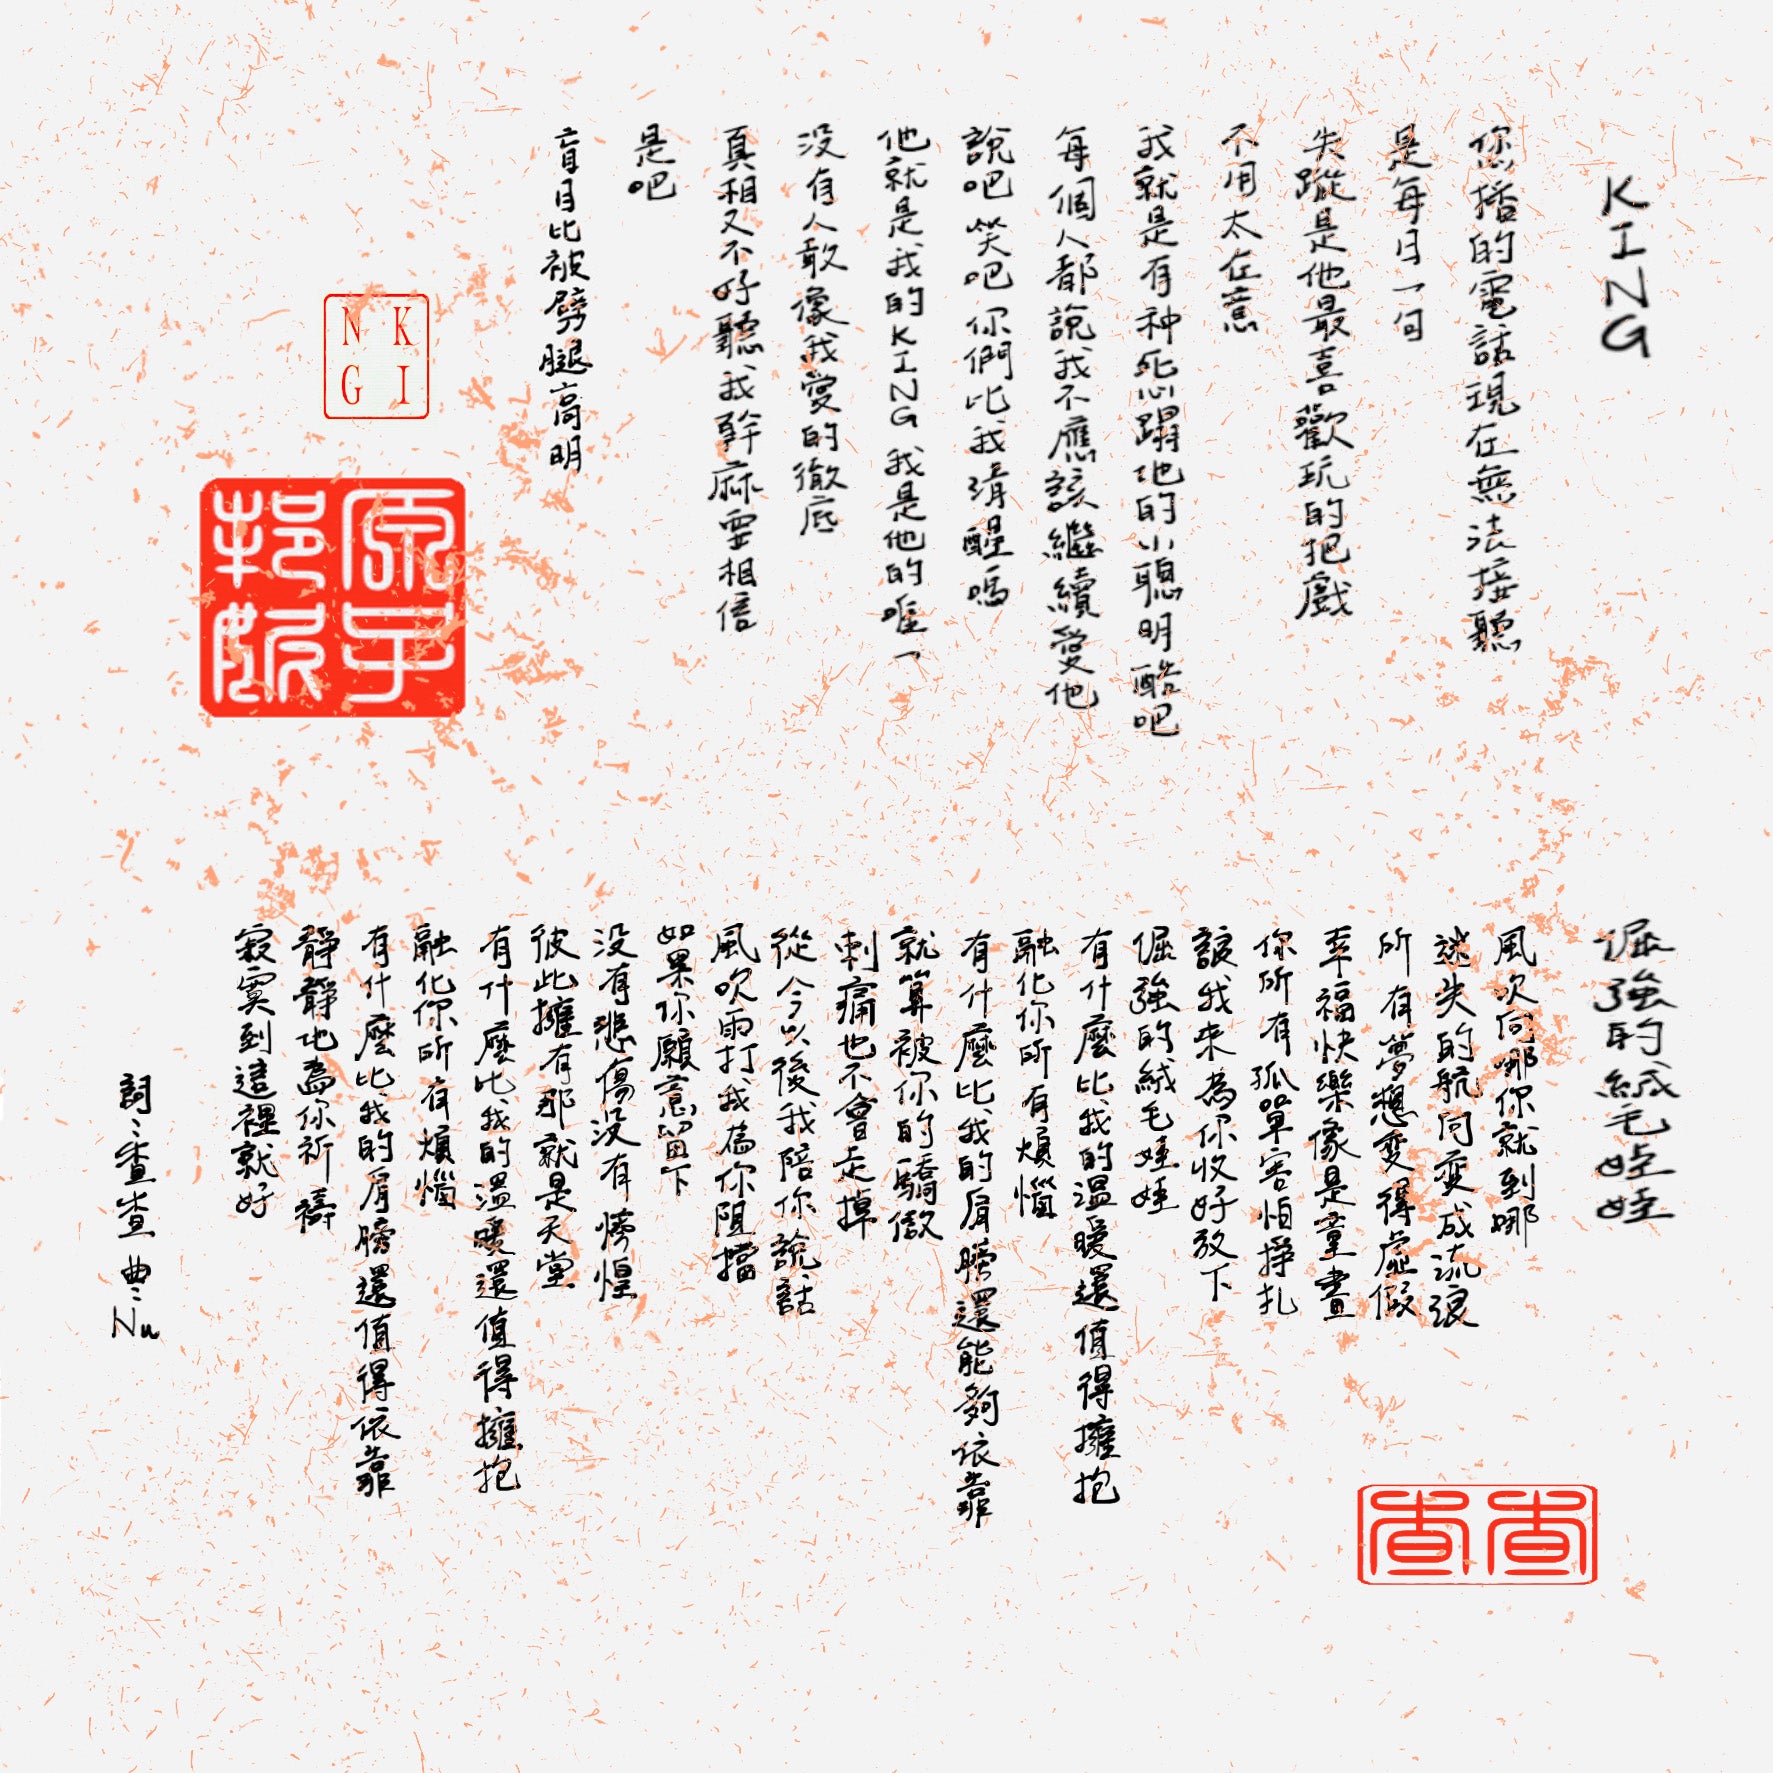 KING
您播的電話現在無法接聽
是每日一句
失蹤是他最喜歡玩的把戲
不用太在意
我就是有种死心蹋地的小聰明酷吧
每個人都說我不應該繼續愛他
說吧 笑吧 你們比我清醒嗎
他就是我的KING 我是他的唯一
没有人敢像我愛的徹底
真相又不好聽我幹麻要相信
是吧
盲目比被劈腿高明
KING
倔強的絨毛娃娃
風吹向哪你就到哪
迷失的航向变成流浪
所有夢想變得虛假
幸福快樂像是童畫
你所有孤單害怕掙扎
該我来為你收好放下
倔強的絨毛娃娃
有什麼比我的溫暖還值得擁抱
融化你所有煩惱
有什麼比我的肩膀還能夠依靠
就算被你的驕傲
刺痛也不會走掉
從今以後我陪你說話
風吹雨打我為你阻擋
如果你願意留下
没有悲傷没有徬惶
彼此擁有那就是天堂
有什麼比我的溫暖還值得擁抱
融化你所有煩惱
有什麼比我的肩膀還值得依靠
靜靜地為你祈禱
寂寞到這裡就好
詞:查查 曲:Nu
查查